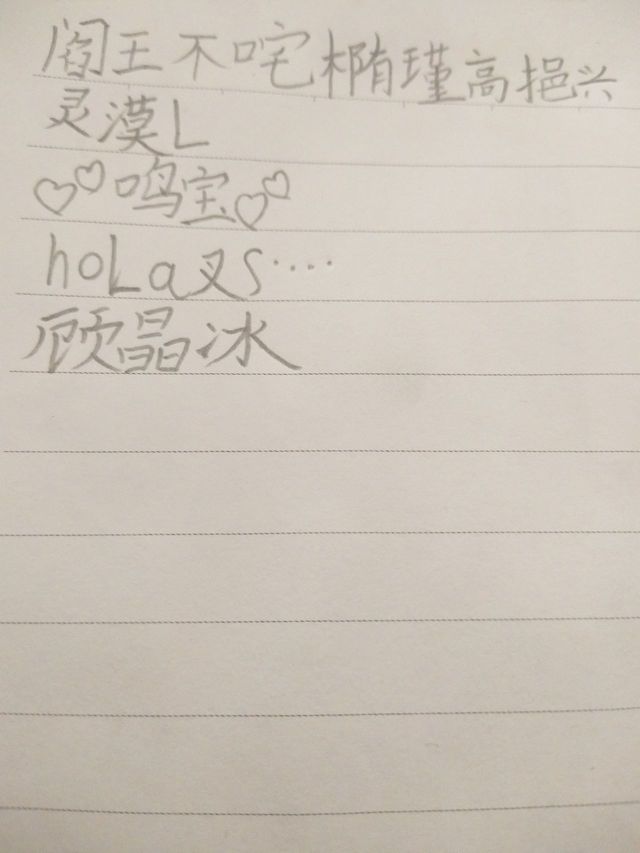 阎王不咤椭瑾高挹兴
灵漠L
♡♡鸣宝♡♡
hoLa叉S····
顾晶冰